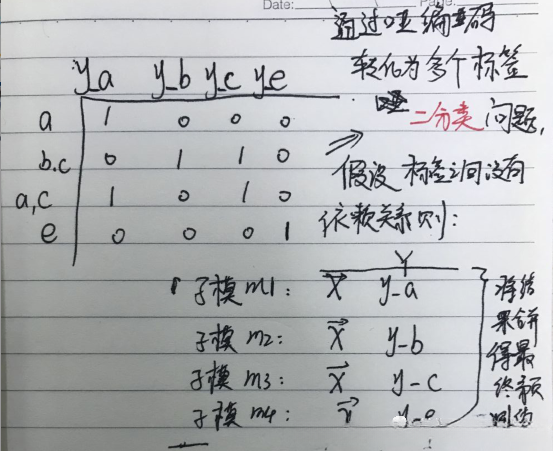 Date:
通过哑编码
转化为多个标签
二分类问题,
假设标签之间没有
依赖关系则:
y_a y_b y_c y_e
a 1 0 0 0
b.c 0 1 1 0
a,c 1 0 1 0
e 0 0 0 1
Y
子模m1: X y_a
子模m2: X y_b
子模m3: X y_c
子模m4:
将结
果合并
得最
终预